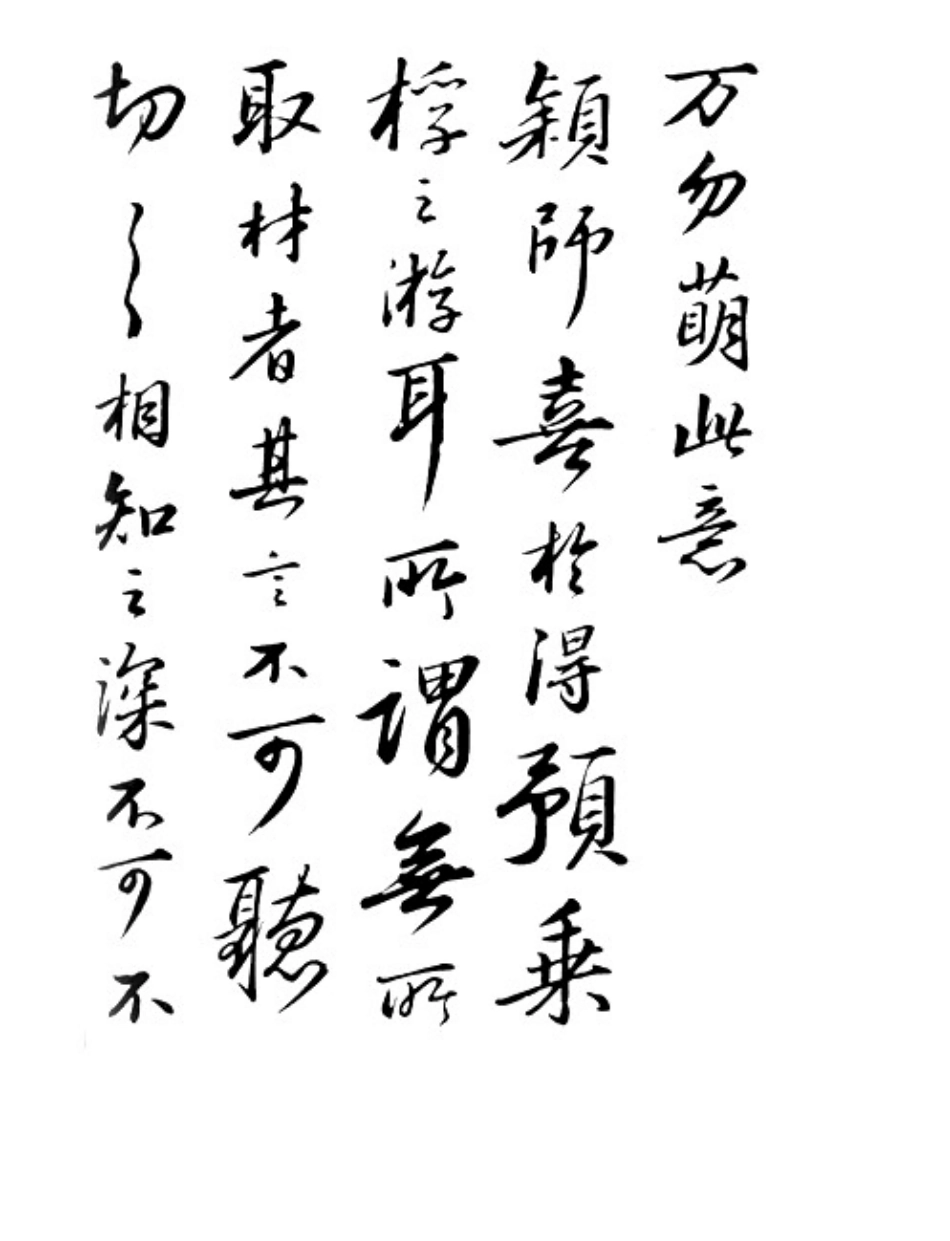 万勿萌此意
颖師喜於得預乗
桴之游耳所謂無所
取材者其言不可聽
切〻相知之深不可不